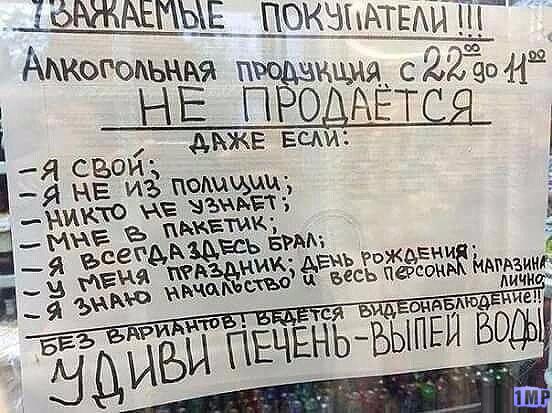 УВАЖАЕМЫЕ ПОКУПАТЕЛИ!!!
АЛКОГОЛЬНАЯ ПРОДУКЦИЯ С 22⁰⁰ ДО 11⁰⁰
НЕ ПРОДАЁТСЯ
ДАЖЕ ЕСЛИ:
- Я СВОЙ;
- Я НЕ ИЗ ПОЛИЦИИ;
- НИКТО НЕ УЗНАЕТ;
- МНЕ В ПАКЕТИК;
- Я ВСЕГДА ЗДЕСЬ БРАЛ;
- У МЕНЯ ПРАЗДНИК; ДЕНЬ РОЖДЕНИЯ;
- Я ЗНАЮ НАЧАЛЬСТВО И ВЕСЬ ПЕРСОНАЛ МАГАЗИНА
ЛИЧНО.
БЕЗ ВАРИАНТОВ! ВЕДЁТСЯ ВИДЕОНАБЛЮДЕНИЕ!!
УДИВИ ПЕЧЕНЬ-ВЫПЕЙ ВОДЫ
1MP